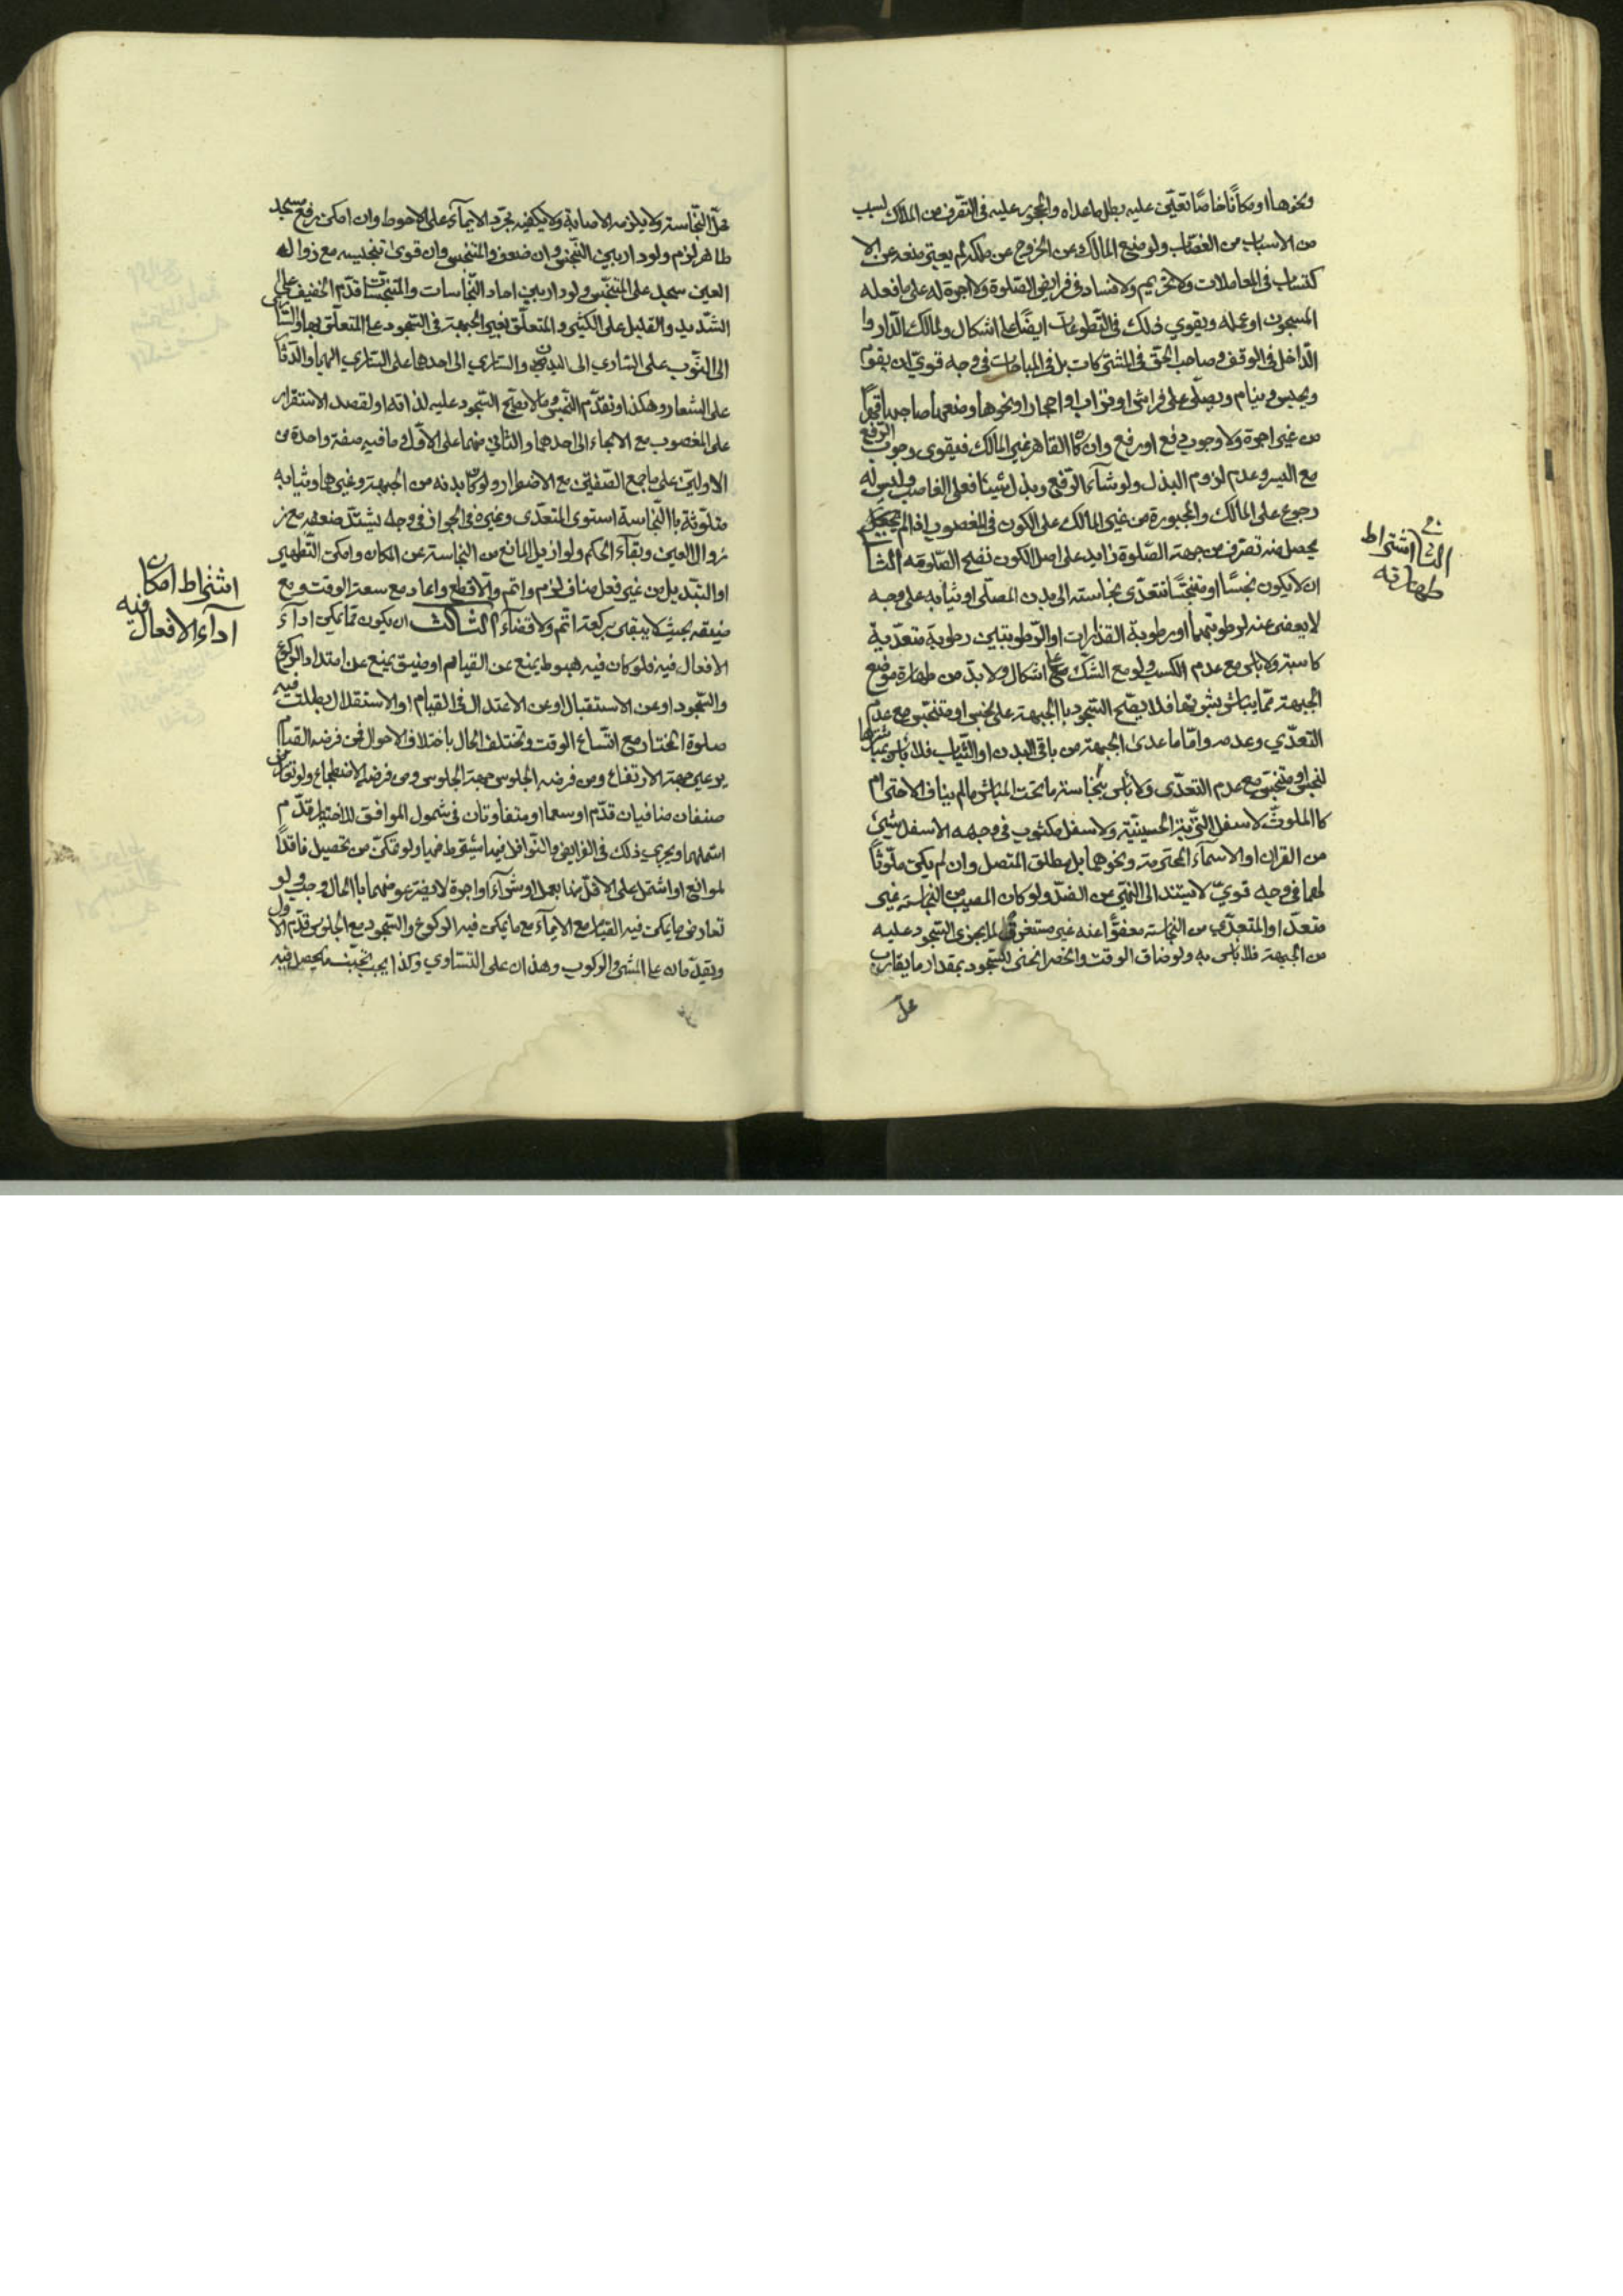 ونحوها او مكانًا خاصًا تعيّن عليه بطل ما عداه والمحجور عليه في التصرف من الملاك لسبب
من الاسباب من الغصّاب ولو منع المالك عن الخروج عن ملكه لم يعتبر منعه عن الا
كتساب في المعاملات ولا تحريم ولا فساد في فرايض الصّلوة ولا اجرة له على ما فعله
المسجون او عمله ويقوي ذلك في التّطوعات ايضًا على اشكال ولمالك الدّار وا
الدّاخل في الوقف وصاحب الحق في المشتركات بل في المباحات في وجه قويّ ان يقوم
ويجلس وينام ويصلّى على فراش او تراب او احجار او نحوها وضعها صاحبها
من غير اجرة ولا وجوب دفع او رفع وان كان القاهر غير المالك فيقوى وجوب الرّفع
مع اليسر وعدم لزوم البذل ولو شآء الرّفع وبذل شيئا فعلى الغاصب وليس له
رجوع على المالك والمجبورة من غير المالك على الكون في المغصوب اذا لم
يحصل منه تصرّف من جهة الصّلوة زايد على اصل الكون تصح الصّلوة فيه الثا
ان لا يكون نجسًا او متنجّسًا تتعدّى نجاسته الى بدن المصلّى او ثيابه على وجه
لا يعفى عنه لرطوبتهما او رطوبة القذرات او الرّطوبتين رطوبة متعدّية
كاسبة ولا باس مع عدم الكسب ولو مع الشّك على اشكال ولا بدّ من طهارة موضع
الجبهة ممّا يباشر بشرتها فلا يصّح السّجود با الجبهة على نجس او متنجّس مع عدم
التعدّي وعدمه وامّا ما عدى الجبهة من باقى البدن او الثّياب فلا بأس بمباشرتها
لنجس او متنجّس مع عدم التعدّى ولا بأس بنجاسة ما تحت المباشر ما لم يناف الاحترام
كا الملوّث لاسفل التّربة الحسينيّة ولا سفل مكتوب في وجهه الاسفل شئ
من القران او الاسمآء المحترمة ونحوهما بل مطلق المتصل وان لم يكن ملوّثًا
لهما في وجه قويّ لا يستند الى النّهي عن الضّد ولو كان المصيب من النجاسة غير
متعدّ او المتعدّي من النجاسة معفوًّا عنه غير مستغرق لما يجزى السّجود عليه
من الجبهة فلا بأس به ولو ضاق الوقت وانحصر انحنى للسّجود بمقدار ما يقارب
محل
الثانى اشتراط
طهارته
محلّ النّجاسة ولا يلزمه الاصابة ولا يكفيه مجرّد الايمآء على الاحوط وان امكن رفع مسجد
طاهر لزم ولو دار بين النّجس وان ضعف والمتنجس وان قوى تنجيسه مع زوال
العين سجد على المتنجّس ولو دار بين احاد النّجاسات والمتنجّسات قدّم الخفيف على
الشّديد والقليل على الكثير والمتعلّق بغير الجبهة في السّجود على المتعلّق بها
الى الثّوب على السّاري الى البدن والسّاري الى احدهما على السّاري اليهما والدّثا
على الشعار وهكذا وتقدّم النّجس وما لا يصحّ السّجود عليه لذاته او لقصد الاستقرار
على المغصوب مع الالجاء الى احدهما والثاني منهما على الاوّل وما فيه صفة واحدة من
الاوليين على ما جمع الصّفتين مع الاضطرار ولو كان بدنه من الجبهة وغيرها وثيابه
متلوّثة با النّجاسة استوى المتعدّى وغيره في الجواز في وجه يشتدّ ضعفه مع
زوال العين وبقآء الحكم ولو ازيل المانع من النجاسة عن المكان وامكن التّطهير
او التبديل من غير فعل مناف لزم واتم والّا قطع واعاد مع سعة الوقت ومع
ضيقه بحيث لا يبقى ركعة اتم ولا قضآء الثالث ان يكون ممّا يمكن ادآء
الافعال فيه فلو كان فيه هبوط يمنع عن القيام او ضيق يمنع عن امتداد الركوع
والسّجود او عن الاستقبال او عن الاعتدال في القيام او الاستقلال بطلت فيه
صلوة المختار مع اتّساع الوقت وتختلف الحال باختلاف الاحوال فمن فرضه القيام
يرعى جهة الارتفاع ومن فرضه الجلوس جهة الجلوس ومن فرضه الاضطجاع ولو تعارض
صنفان منافيان قدّم اوسعهما او متفاوتان في شمول الموافق للاختيار قدّم
اشملهما ويجري ذلك في الفرايض والنّوافل فيما يشترط فيها ولو تمكّن من تحصيل فاقدًا
لموانع او اشتمل على الاقلّ منها بعمل او شرآء او اجرة لا يضرّ عوضهما با الحال وجب ولو
تعارض ما يمكن فيه القيام مع الايمآء مع ما يمكن فيه الركوع والسّجود مع الجلوس قدّم الاول
ويقدّمان على المشى والركوب وهذان على التساوي وكذا يجب تجنّب ما يحصل فيه
اشتراط امكان
ادآء الافعال فيه